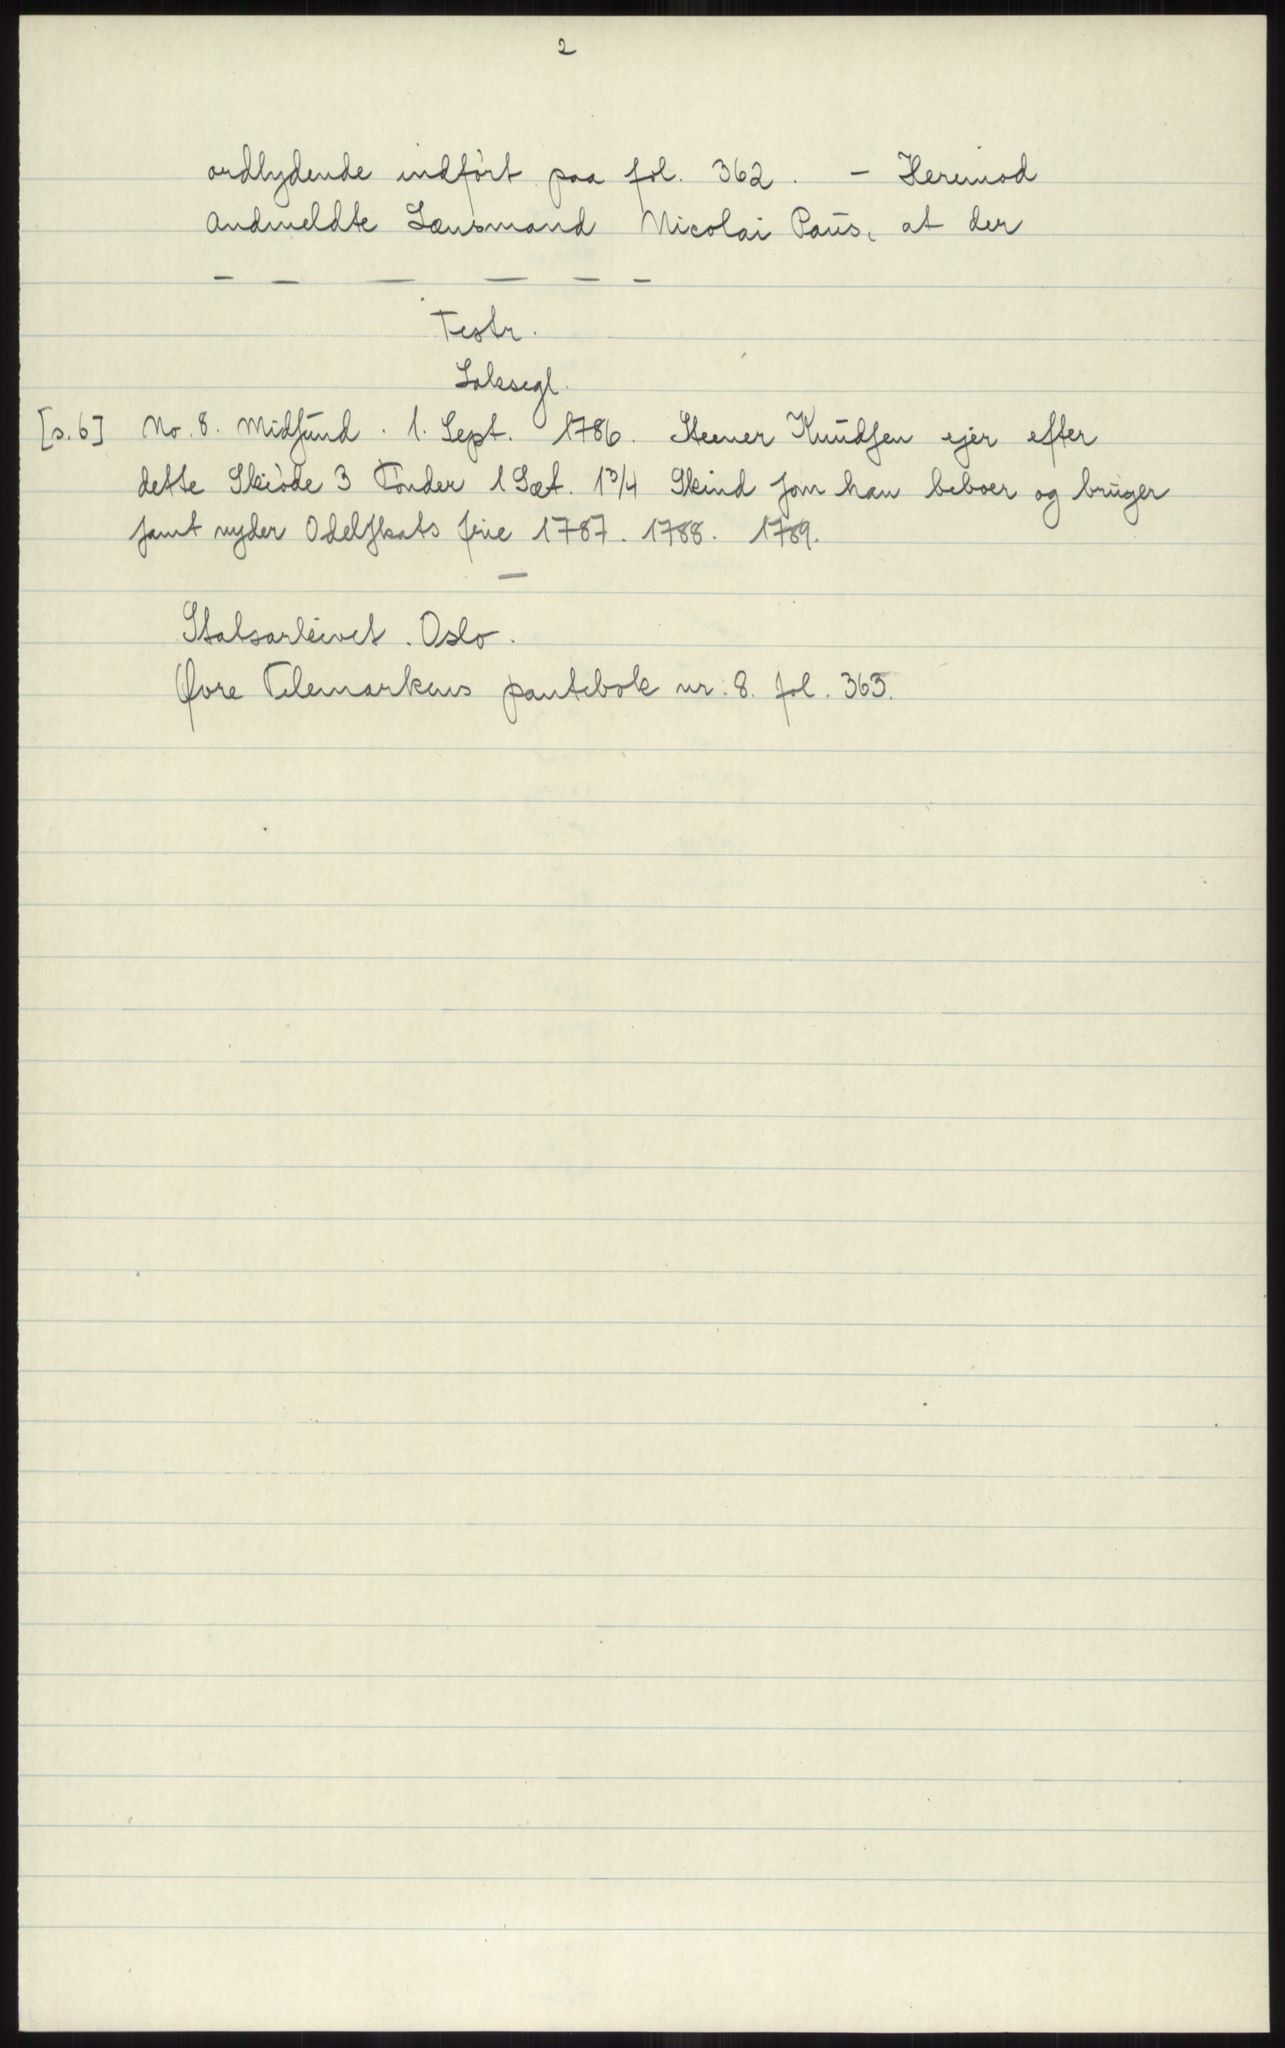 2
ordlydende indført paa fol. 362. – Heremod
andmeldte Lænsmand Nicolai Paus, at der
— — — — — —
Testr.
Laksegl.
[s. 6] No. 8. Midsund. 1. Sept. 1786. Steener Knudsen ejer efter
dette Skiøde 3 Tønder 1 Sæt. 1 3/4 Skind som han beboer og bruger
samt nyder Odelskats frie 1787. 1788. 1789.
—
Statsarkivet. Oslo.
Øvre Telemarkens pantebok nr. 8. fol. 363.